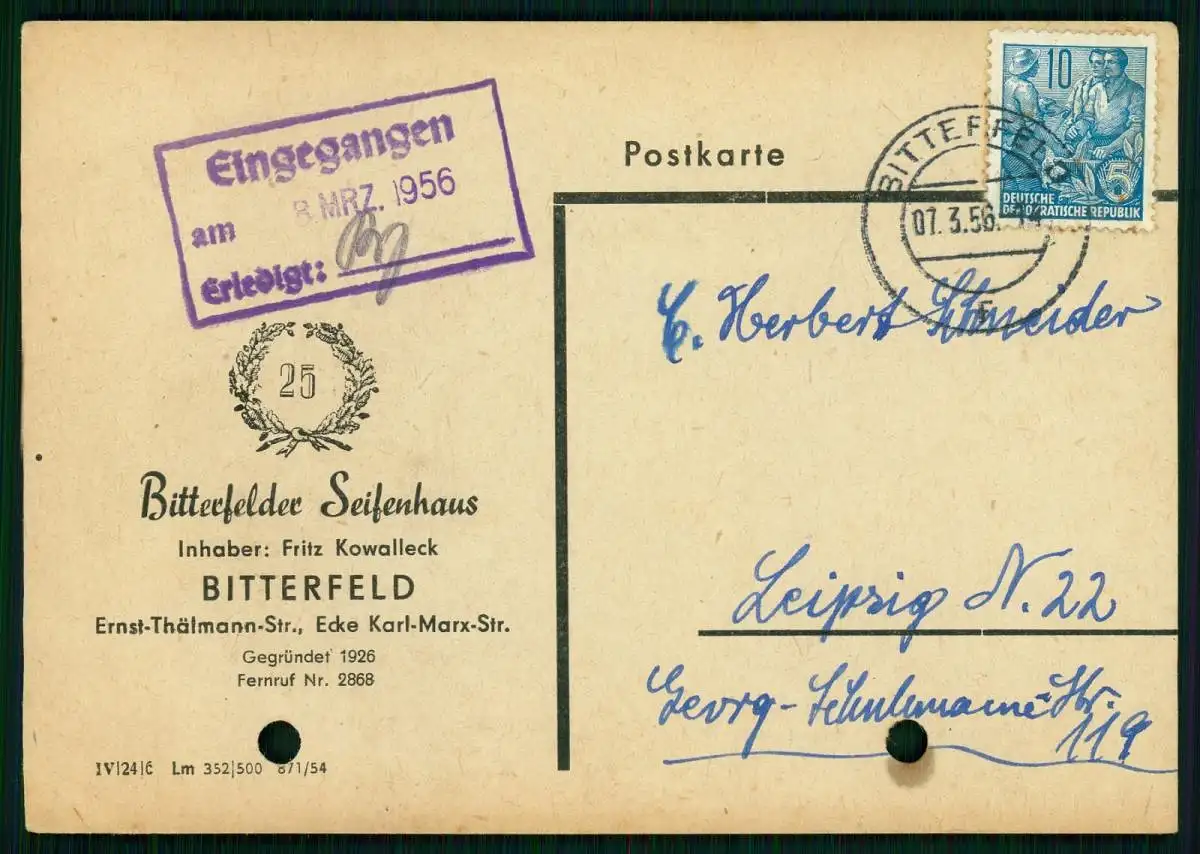 Eingegangen
am 8. MRZ. 1956
Erledigt:
25
Bitterfelder Seifenhaus
Inhaber: Fritz Kowalleck
BITTERFELD
Ernst-Thälmann-Str., Ecke Karl-Marx-Str.
Gegründet 1926
Fernruf Nr. 2868
IV|24|6 Lm 352|500 871/54
Postkarte
10
5
DEUTSCHE
DEMOKRATISCHE REPUBLIK
BITTERFELD
07.3.56.
Herbert Schneider
Leipzig N. 22
Georg-Schuhmann-Str.
119